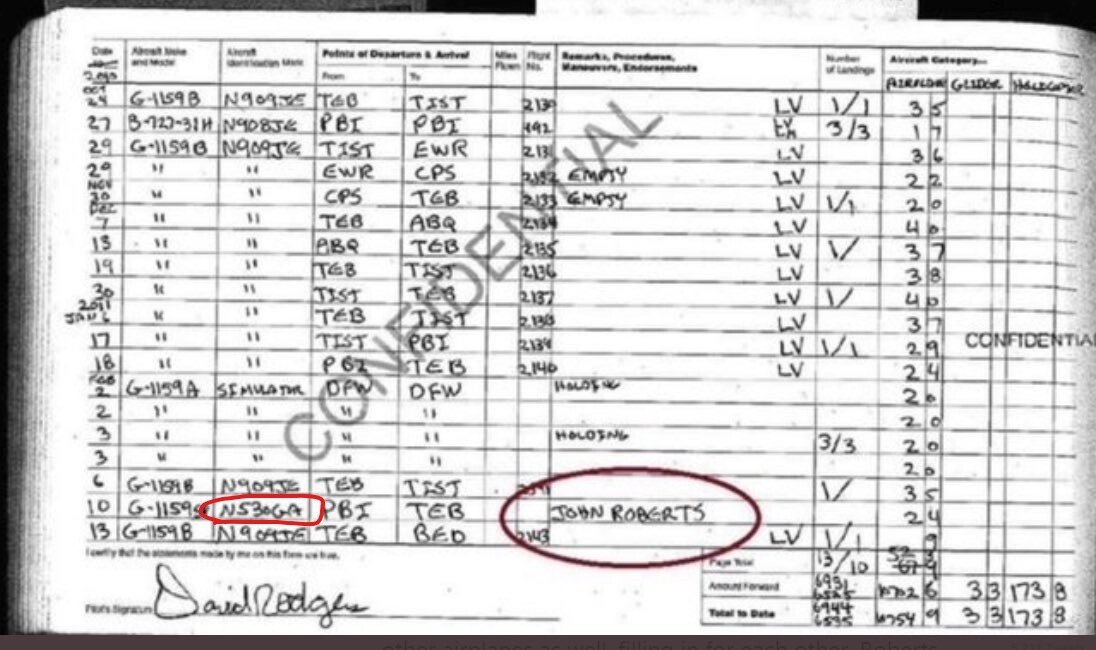 Date Aircraft Make and Model Aircraft Identification Mark Points of Departure & Arrival Miles Flown Flight No. Remarks, Procedures, Maneuvers, Endorsements Number of Landings Aircraft Category...
From To AIRPLANE GLIDER
OCT 24 G-1159B N909JE TEB TIST 2130 LV 1/1 3 5
27 B-727-31H N908JE PBI PBI 492 3/3 1 7
29 G-1159B N909JE TIST EWR 2131 LV 3 6
29 " " EWR CPS 2132 EMPTY LV 2 2
NOV 30 " " CPS TEB 2133 EMPTY LV 1/1 2 0
DEC 7 " " TEB ABQ 2134 LV 4 0
13 " " ABQ TEB 2135 LV 1/ 3 7
19 " " TEB TIST 2136 LV 3 8
30 " " TIST TEB 2137 LV 1/ 4 0
2011 JAN 6 " " TEB TIST 2138 LV 3 7
17 " " TIST PBI 2139 LV 1/1 2 9 CONFIDENTIAL
18 " " PBI TEB 2140 LV 2 4
FEB 2 G-1159A SIMULATOR DFW DFW HOLDING 2 0
2 " " " " 2 0
3 " " " " HOLDING 3/3 2 0
3 " " " " 2 0
6 G-1159B N909JE TEB TIST 1/ 3 5
10 N530GA PBI TEB JOHN ROBERTS 2 4
13 G-1159B N909JE TEB BED 2143 LV 1/1 9
CONFIDENTIAL
I certify that the statements made by me on this form are true.
Page Total 13/10
Amount Forward 6931 6 3 3 173 8
Pilot's Signature David Rodgers Total to Date 6944 9 3 3 173 8
other airplanes as well, filling in for each other. Roberts